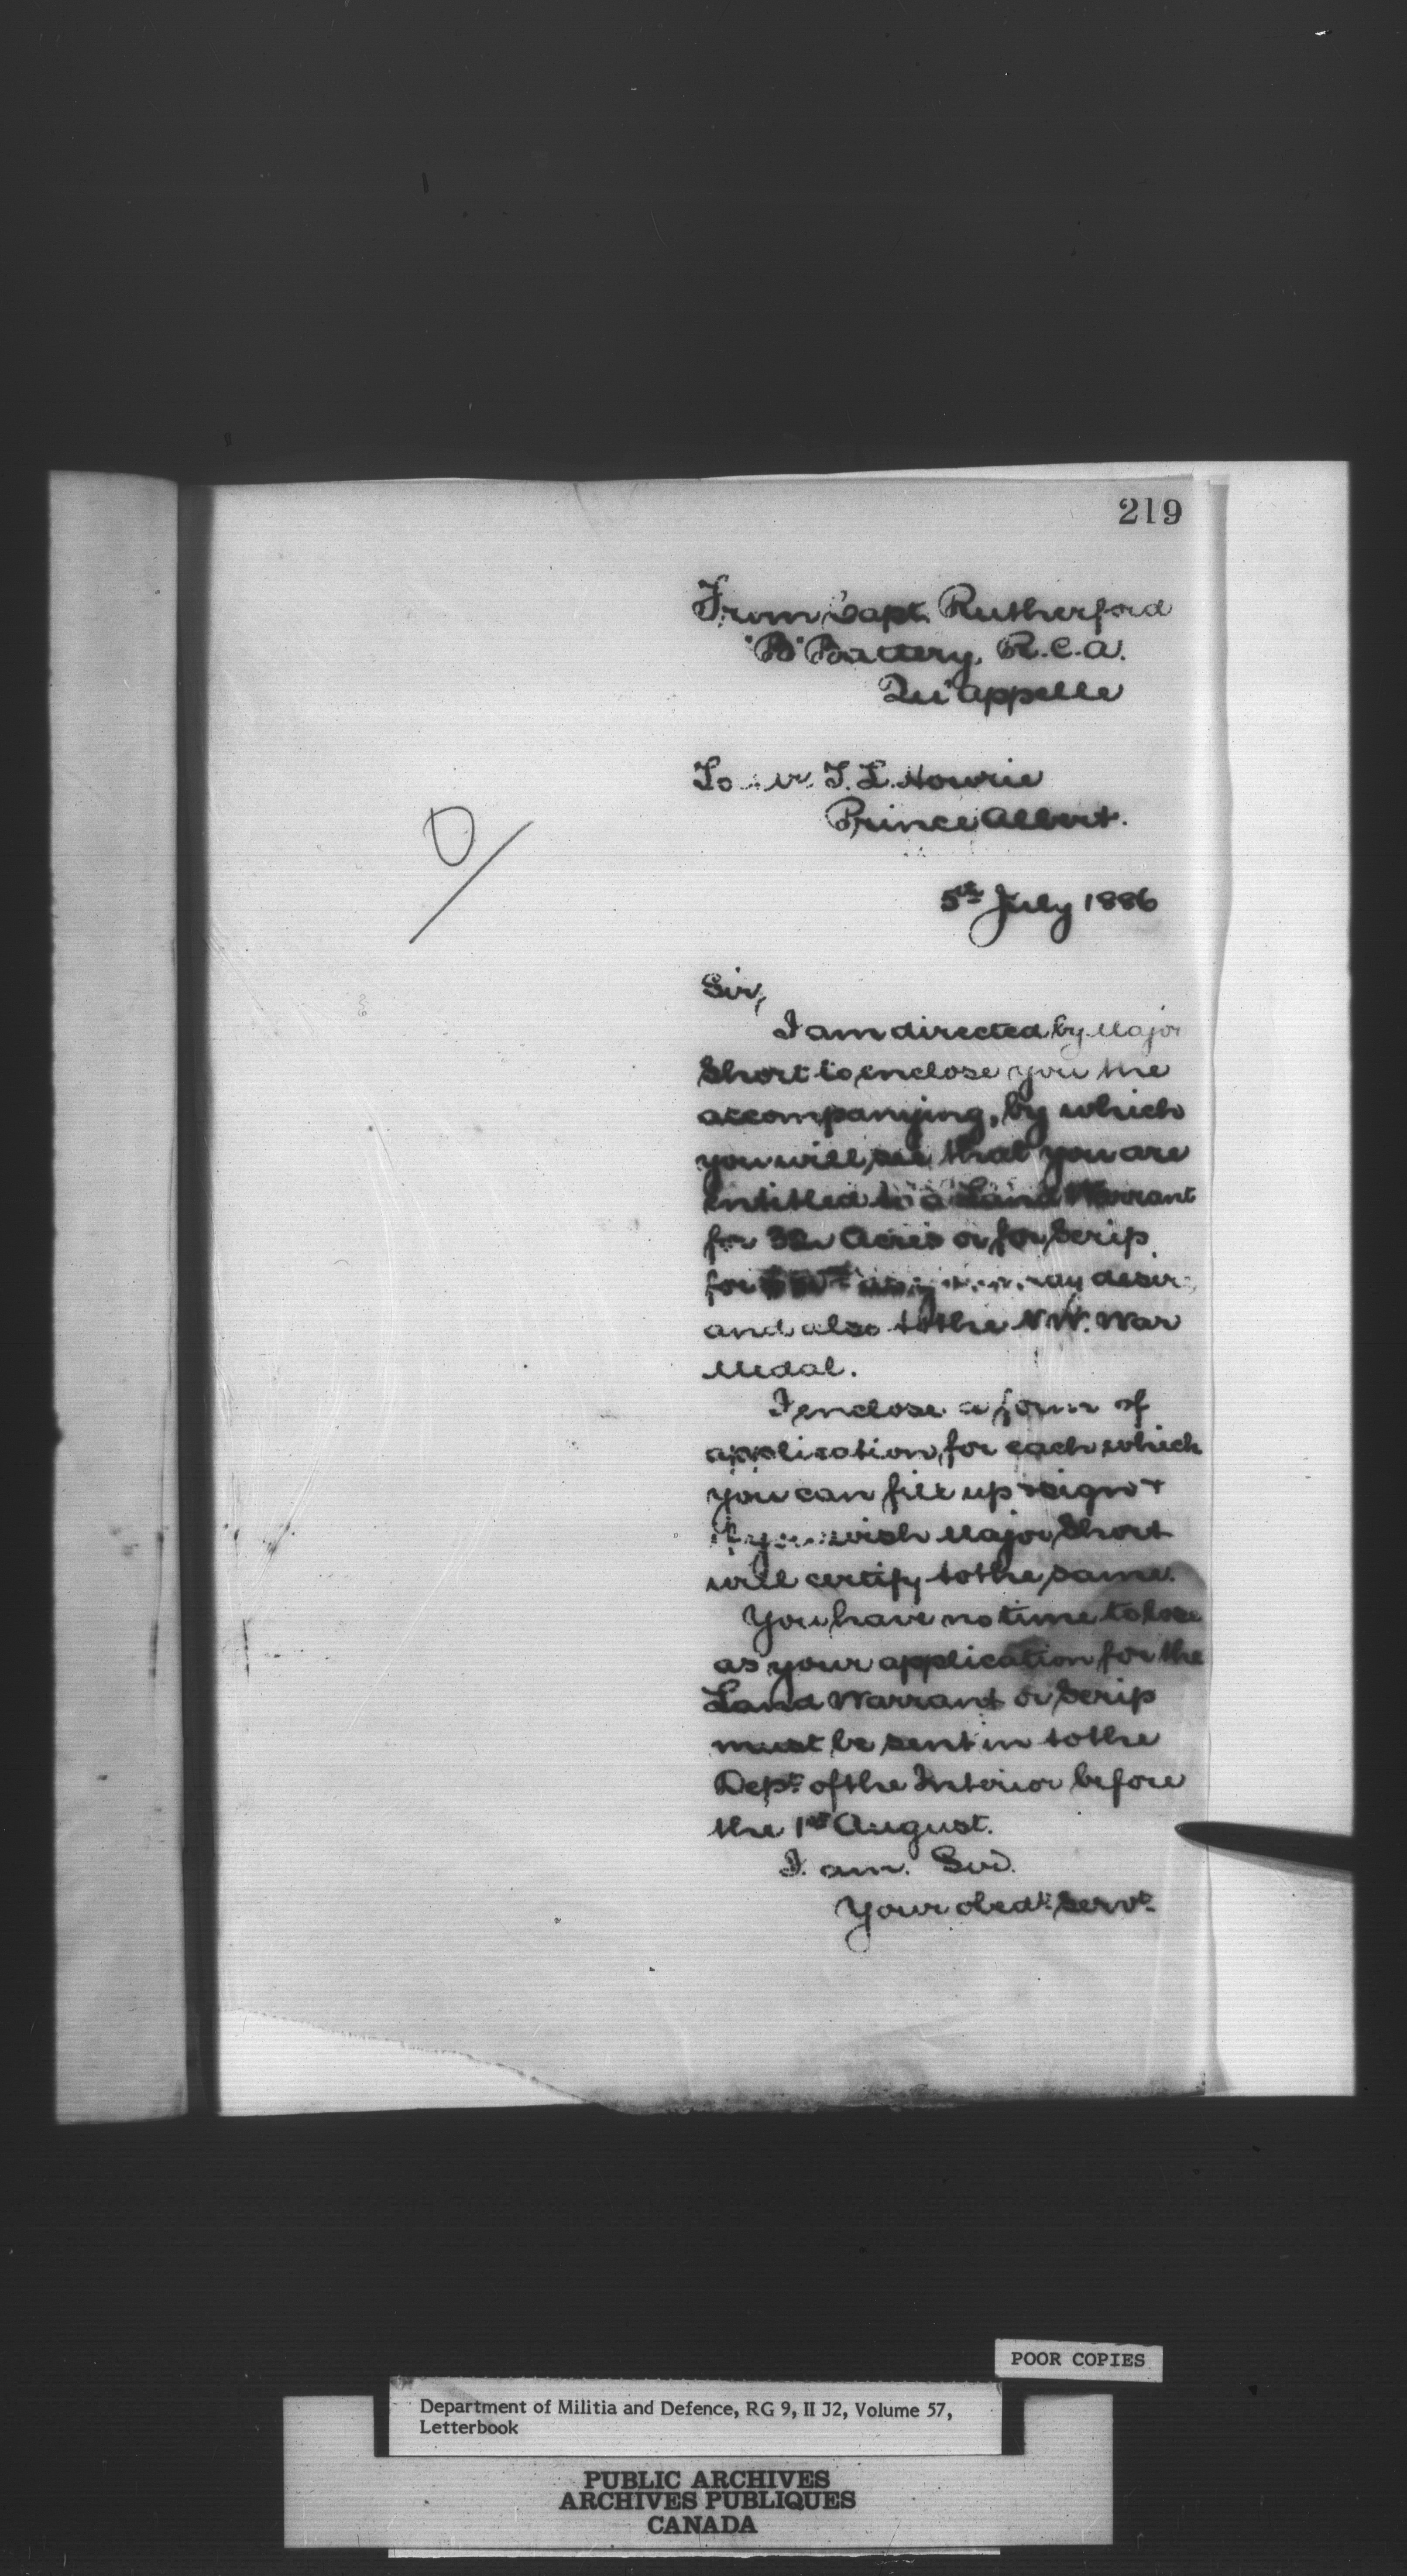 219
From Capt. Rutherford
"B" Battery, R.C.A.
Qu'appelle
To Mr. T. L. Hourie
Prince Albert.
5th July 1886
D/
Sir,
I am directed by Major
Short to enclose you the
accompanying, by which
you will see that you are
entitled to a Land Warrant
for 32 Acres or for Scrip
for may desire
and also to the N.W. War
Medal.
I enclose a form of
application for each which
you can fill up sign +
if you wish Major Short
will certify to the same.
You have no time to lose
as your application for the
Land Warrant or Scrip
must be sent in to the
Dept. of the Interior before
the 1st August.
I am. Sir.
Your obedt. Servt.
POOR COPIES
Department of Militia and Defence, RG 9, II J2, Volume 57,
Letterbook
PUBLIC ARCHIVES
ARCHIVES PUBLIQUES
CANADA